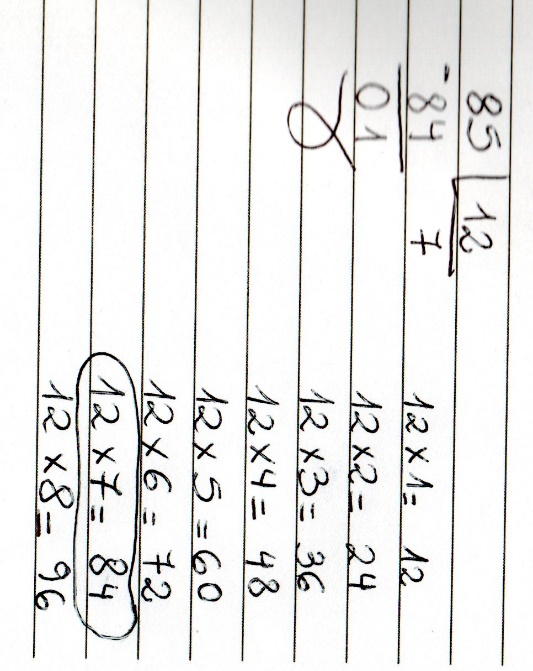 85 12
-84 7
01
12 x 1 = 12
12 x 2 = 24
12 x 3 = 36
12 x 4 = 48
12 x 5 = 60
12 x 6 = 72
12 x 7 = 84
12 x 8 = 96